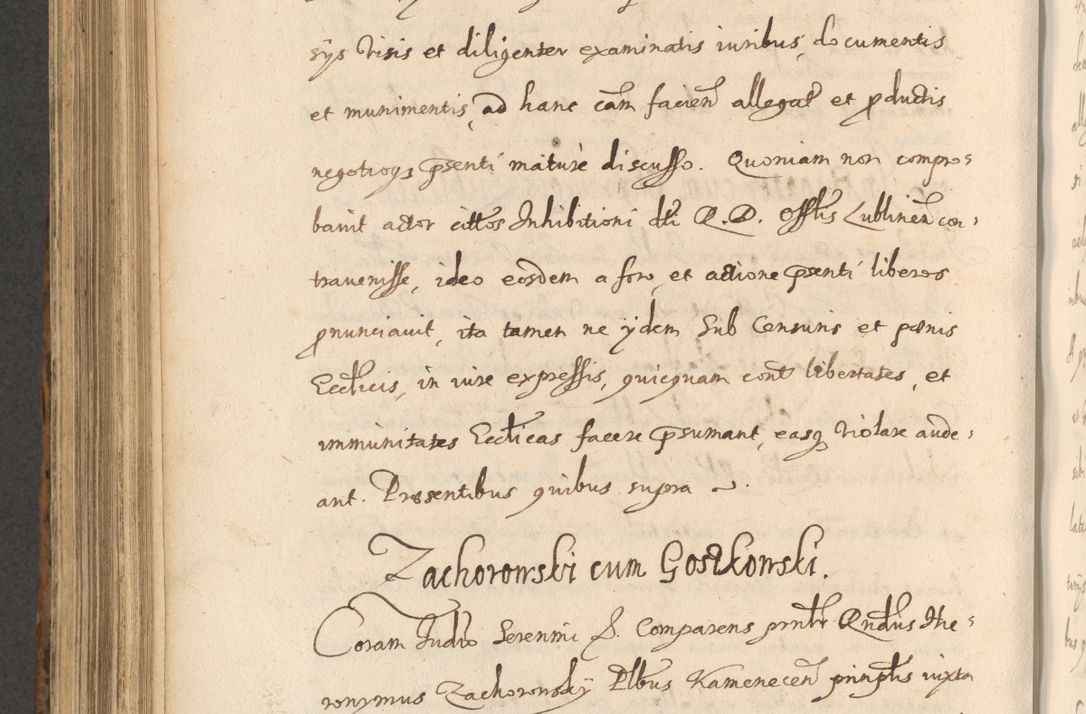 sÿs visis et diligenter examinatis iuribus, documentis
et munimentis, ad hanc cām facieñ allegat̃ et ꝓductis
negotioqꝫ p̄senti mature discusso. Quoniam non compro⸗
bavit actor cittos Inhibitioni dti R.D. Offlis Lublineñ con⸗
travenisse, ideo eosdem a foro et actione p̄senti liberos
ꝓnunciavit, ita tamen ne ÿdem sub Censuris et pœnis
Ecclicis, in iure expressis, quicquam cont̃ libertates, et
immunitates Ecclicas facere p̄sumant, easqꝫ violare aude⸗
ant. Presentibus quibus supra ~.
Zachorowski cum Gostkowski.
Coram Iudio Serenmi S. Comparens prnlr Rndus Hie⸗
ronymus Zachorowskÿ Plbus Kameneceñ prinplis iuxta